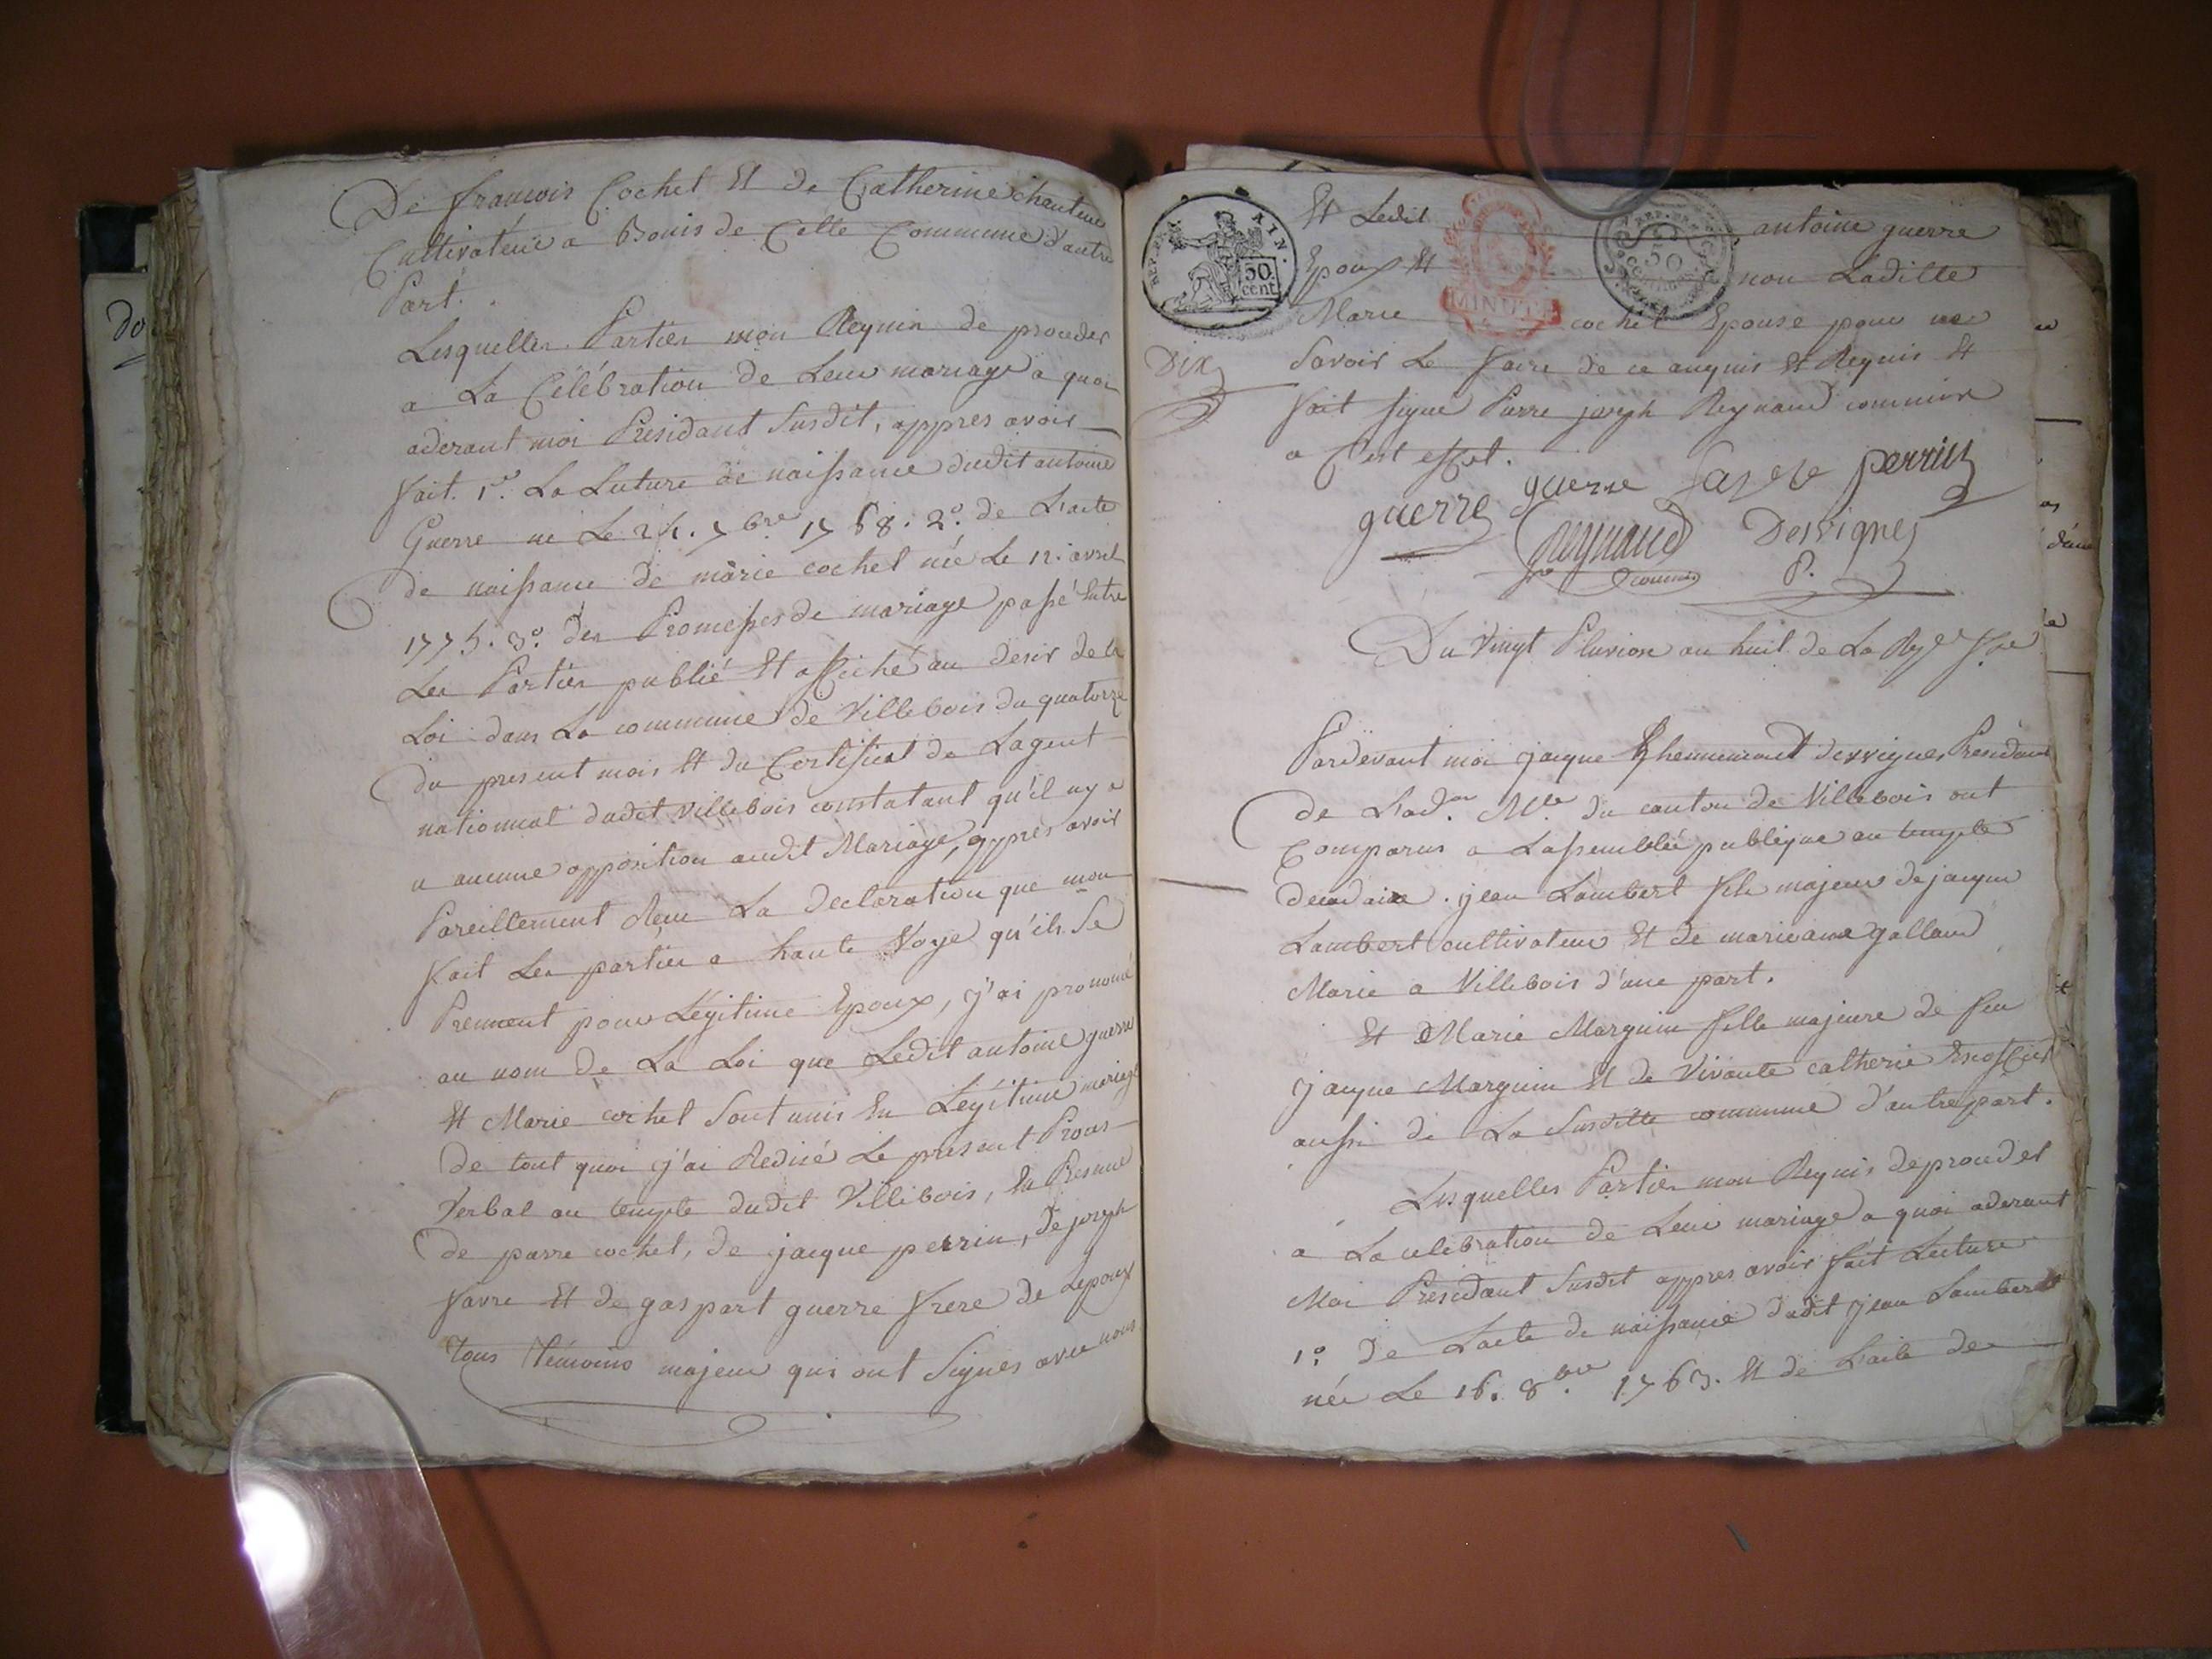 De francois Cochet Et de Catherine chanteur
Cultivateur a Bouis de Cette Commune d'autre
Part.
Lesquelles Parties mon Requin de proceder
a La Célébration de Leur mariage a quoi
aderant moi Présidant Susdit, appres avoir
fait. 1º. La Lecture de naissance dudit antoine
Guerre né Le 24. 7bre 1768. 2º. de L'acte
de naissance de marie cochet née Le 12. avril
1775. 3º. des Promesses de mariage passé Entre
Les Parties publié Et affiché au desir de la
Loi dans La commune de Villebois du quatorze
du present mois Et du Certificat de Lagent
nationnal dudit Villebois constatant qu'il ny a
u aucune opposition audit Mariage, appres avoir
Pareillement Reçu La declaration que mon
fait Les parties a haute Voye qu'ils Se
Prennent pour Légitime Epoux, j'ai prononcé
au nom de La Loi que Ledit antoine guerre
Et Marie cochet Sont unis En Légitime mariage
de tout quoi j'ai Redigé Le present Proces
Verbal au temple dudit Villebois, En Presence
de pierre cochet, de jacque perrin, de joseph
favre Et de gaspart guerre frere de Lepoux
Tous témoins majeur qui ont Signés avec nous
50.
cent
MINUTE
50
Et Ledit antoine guerre
Epoux Et non Laditte
Marie cochet Epouse pour ne
Dix
Savoir Le faire de ce anquis Et Requis Et
fait signe Pierre joseph Reynaud commis
a C'est effet.
guerre guerre favre perrin
Reynaud Desvignes
commis P.
Du Vingt Pluviose an huit de La Rep fse
Pardevant moi jacque desvignes Présidant
de L'adon Mle du canton de Villebois ont
Comparus a Lassemblée publique au temple
decadaire. jean Lambert fils majeur de jacque
Lambert cultivateur Et de marieanne galland
Marié a Villebois d'une part.
Et Marie Marguin fille majeure de feu
jacque Marguin Et de Vivante catherie
aussi de La Susditte commune d'autre part.
Lesquelles Parties mon Requis de proceder
a La celebration de Leur mariage a quoi aderant
Moi Présidant Susdit appres avoir fait Lecture
1º. De Lacte de naissance dudit jean Lambert
née Le 16. 8bre 1763. Et de L'acte de